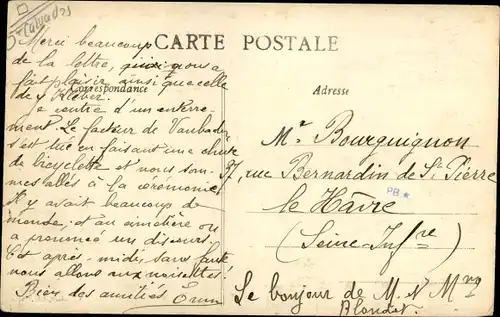 Calvados
CARTE POSTALE
Correspondance
Adresse
Merci beaucoup
de la lettre, qui nous a
fait plaisir ainsi que celle
de Kléber.
Je rentre d'un enterre-
ment. Le facteur de Vaubadon
s'est tué en faisant une chute
de bicyclette et nous som-
mes allés à la cérémonie.
Il y avait beaucoup de
monde, et au cimetière on
a prononcé un discours.
Cet après-midi, sans faute
nous allons aux noisettes!
Bien des amitiés
Mr Bourguignon
37, rue Bernardin de St Pierre
le Hâvre
(Seine-Infre)
PB
Le bonjour de M. & Mme
Blondet.